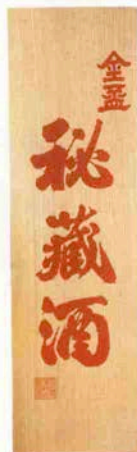 金盃
秘藏酒